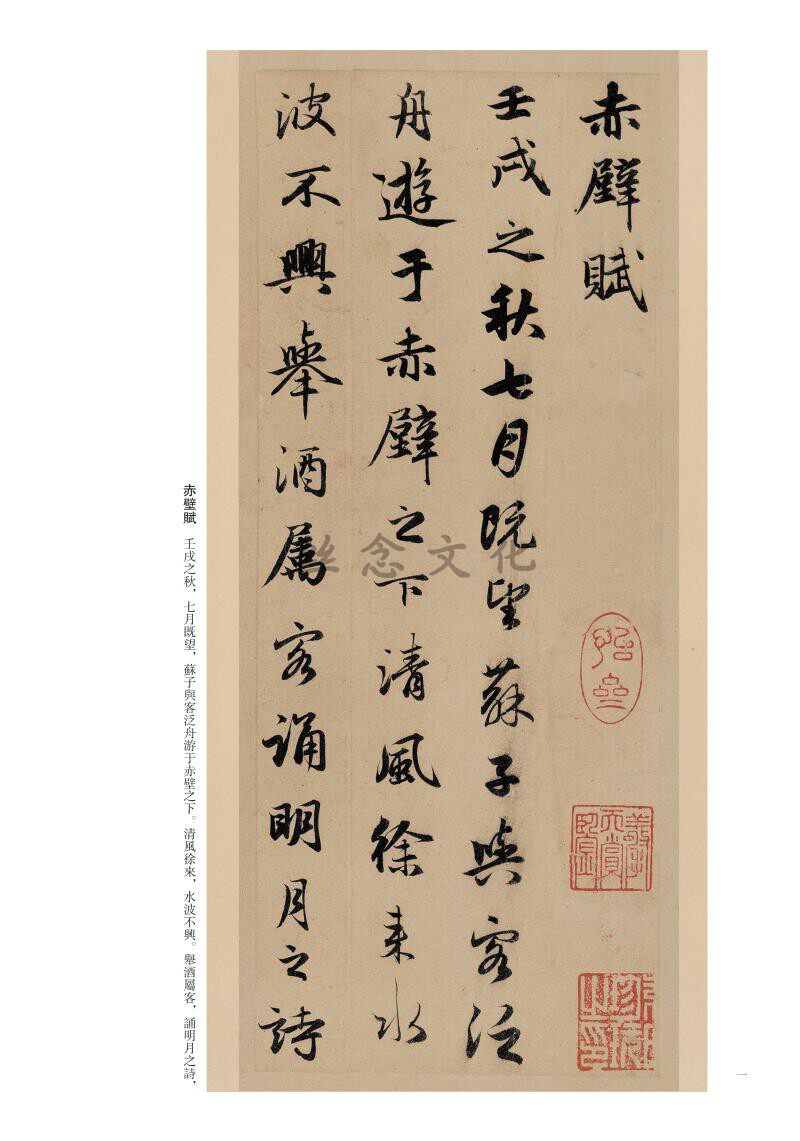 赤壁賦
壬戌之秋七月既望蘇子與客泛
舟遊于赤壁之下清風徐来水
波不興舉酒属客誦明月之詩
赤壁賦　壬戌之秋，七月既望，蘇子與客泛舟游于赤壁之下。清風徐來，水波不興。舉酒屬客，誦明月之詩，
丝念文化
一